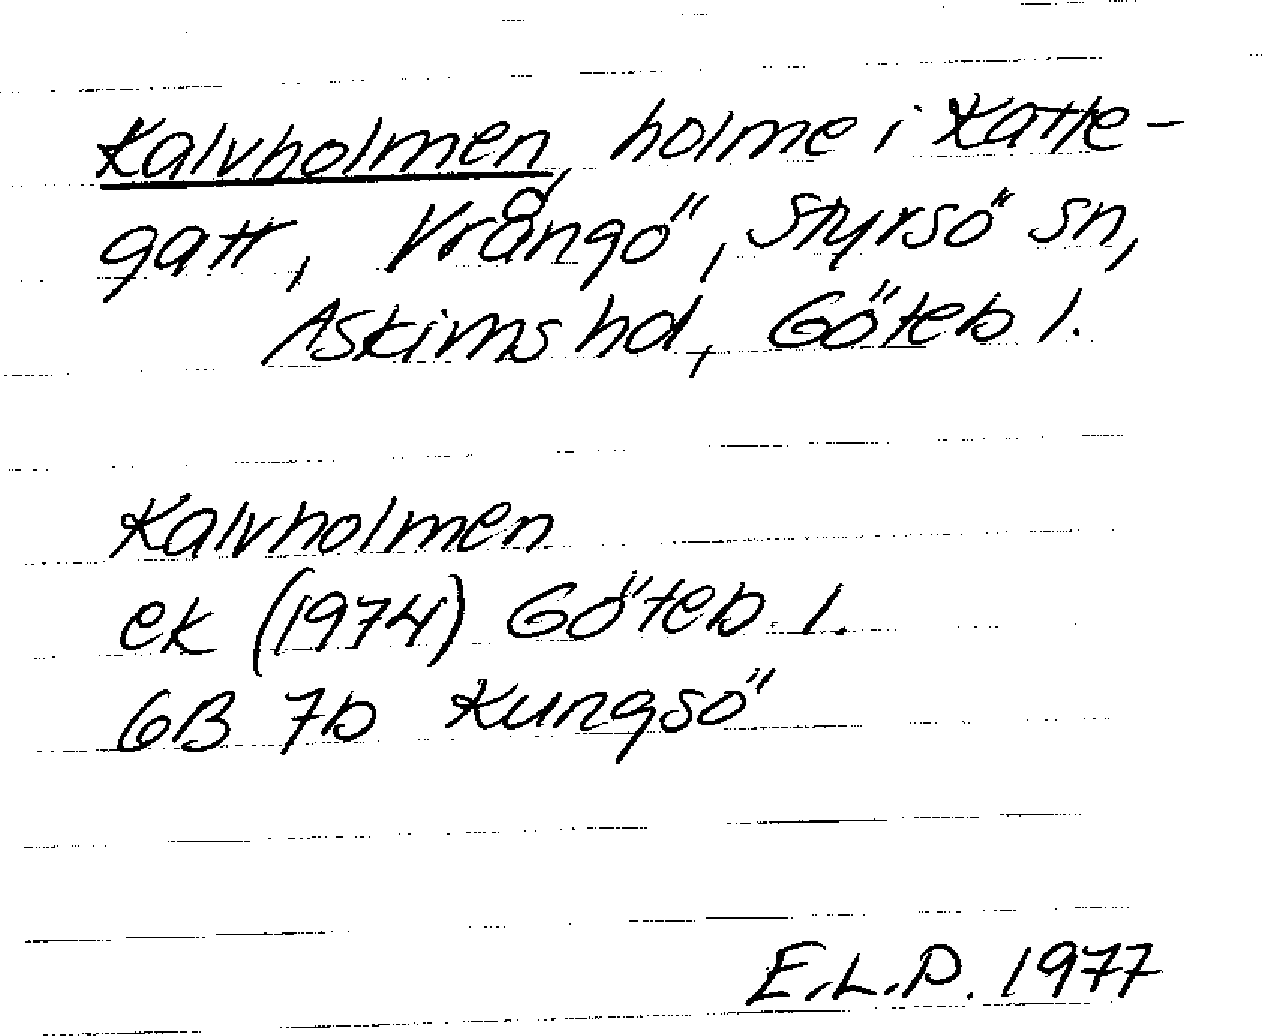 Kalvholmen, holme i Katte-
gatt, Vrångö, Styrsö sn,
Askims hd, Göteb l.
Kalvholmen
ek (1974) Göteb. l.
6B 7b Kungsö
E.L.P. 1977